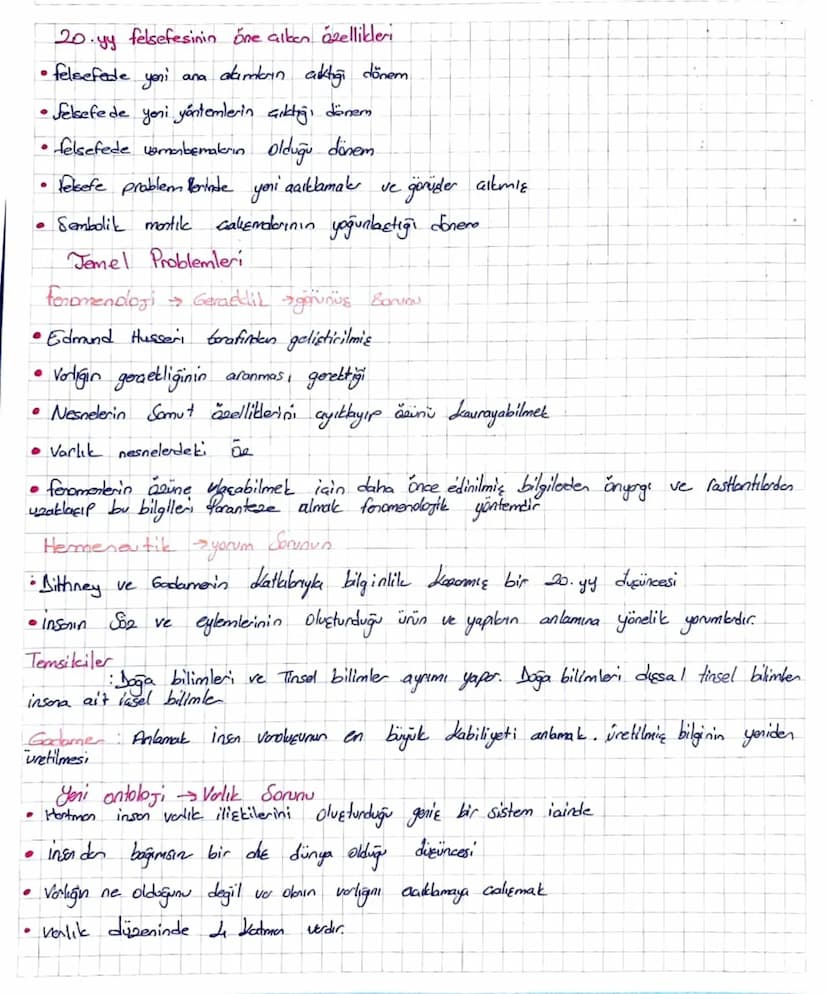 20.yy felsefesinin öne çıkan özellikleri
• felsefede yeni ana akımların çıktığı dönem
• felsefede yeni yöntemlerin çıktığı dönem
• felsefede uzmanlaşmaların olduğu dönem
• felsefe problemlerinde yeni açıklamalar ve görüşler çıkmış
• Sembolik mantık çalışmalarının yoğunlaştığı dönem
Temel Problemleri
fenomenoloji → Gerçeklik → görünüş Sorunu
• Edmund Husserl tarafından geliştirilmiş
• Varlığın gerçekliğinin aranması gerektiği
• Nesnelerin Somut özelliklerini ayıklayıp özünü kavrayabilmek
• Varlık nesnelerdeki öz
• fenomenlerin özüne ulaşabilmek için daha önce edinilmiş bilgilerden önyargı ve rastlantılardan
uzaklaşıp bu bilgileri paranteze almak fenomenolojik yöntemdir
Hermeneutik → yorum Sorunun
• Dilthney ve Gadamerin katkılarıyla bilginlik kazanmış bir 20.yy düşüncesi
• insanın Söz ve eylemlerinin oluşturduğu ürün ve yapıların anlamına yönelik yorumlardır.
Temsilciler
: Doğa bilimleri ve Tinsel bilimler ayrımı yapar. Doğa bilimleri dışsal tinsel bilimler
insana ait içsel bilimler
Gadamer : Anlamak insan varoluşunun en büyük kabiliyeti anlamak. üretilmiş bilginin yeniden
üretilmesi
Yeni ontoloji → Varlık Sorunu
• Hartman insan varlık ilişkilerini oluşturduğu geniş bir sistem içinde
• insandan bağımsız bir dış dünya olduğu düşüncesi
• Varlığın ne olduğunu değil var olanın varlığını açıklamaya çalışmak
• varlık düzeninde 4 katman vardır.